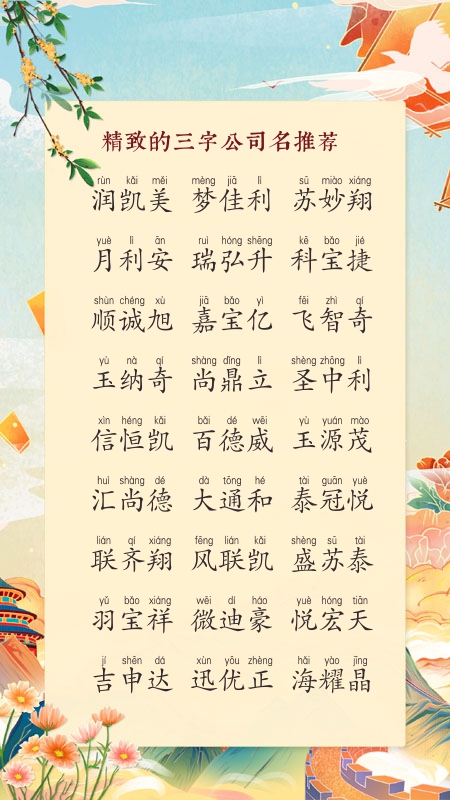 精致的三字公司名推荐
rùn kǎi měi mèng jiā lì sū miào xiáng
润凯美 梦佳利 苏妙翔
yuè lì ān ruì hóng shēng kē bǎo jié
月利安 瑞弘升 科宝捷
shùn chéng xù jiā bǎo yì fēi zhì qí
顺诚旭 嘉宝亿 飞智奇
yù nà qí shàng dǐng lì shèng zhōng lì
玉纳奇 尚鼎立 圣中利
xìn héng kǎi bǎi dé wēi yù yuán mào
信恒凯 百德威 玉源茂
huì shàng dé dà tōng hé tài guān yuè
汇尚德 大通和 泰冠悦
lián qí xiáng fēng lián kǎi shèng sū tài
联齐翔 风联凯 盛苏泰
yǔ bǎo xiáng wēi dí háo yuè hóng tiān
羽宝祥 微迪豪 悦宏天
jí shēn dá xùn yōu zhèng hǎi yào jīng
吉申达 迅优正 海耀晶